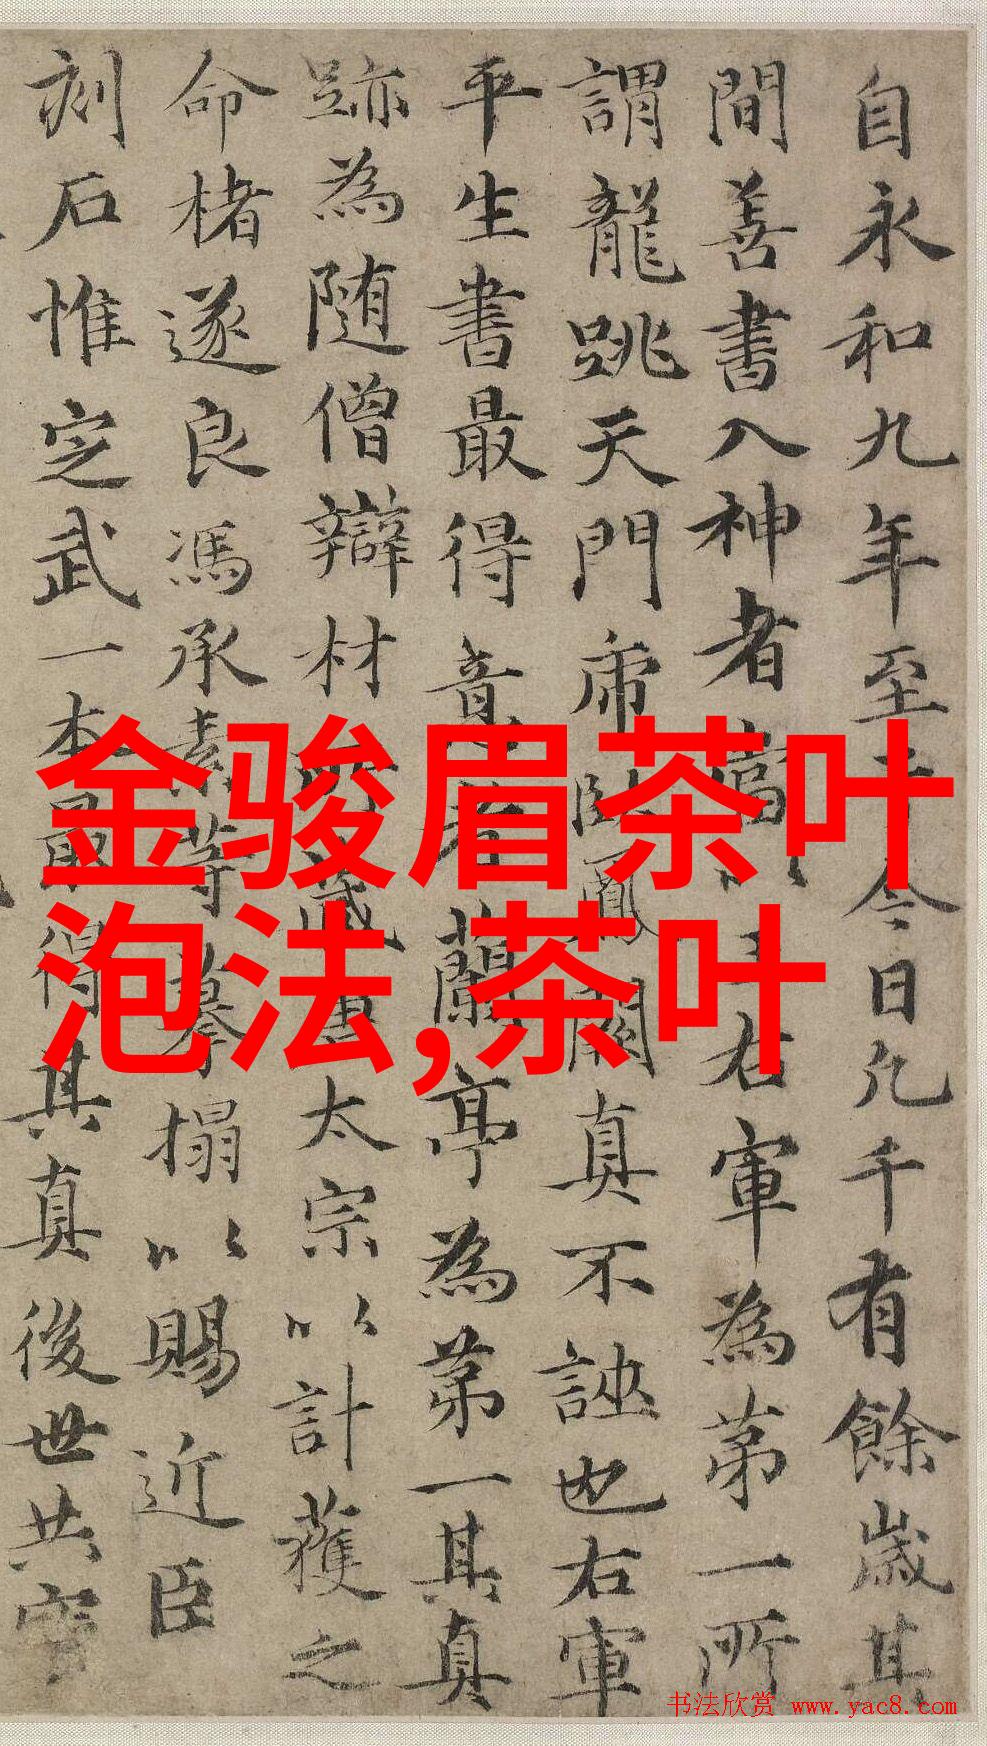 自永和九年至于今日凡千有餘歲其
間善書入神者當以王右軍為第一所
謂龍跳天門虎臥鳳閣真不誣也右軍
平生書最得意者蘭亭為第一其真
跡為随僧辯材所藏唐太宗以計獲之
命楮遂良馮承素等摹搨以賜近臣
刻石惟定武一本最得其真後世共寶
金骏眉茶叶
泡法,茶叶
书法欣赏 www.yac8.com